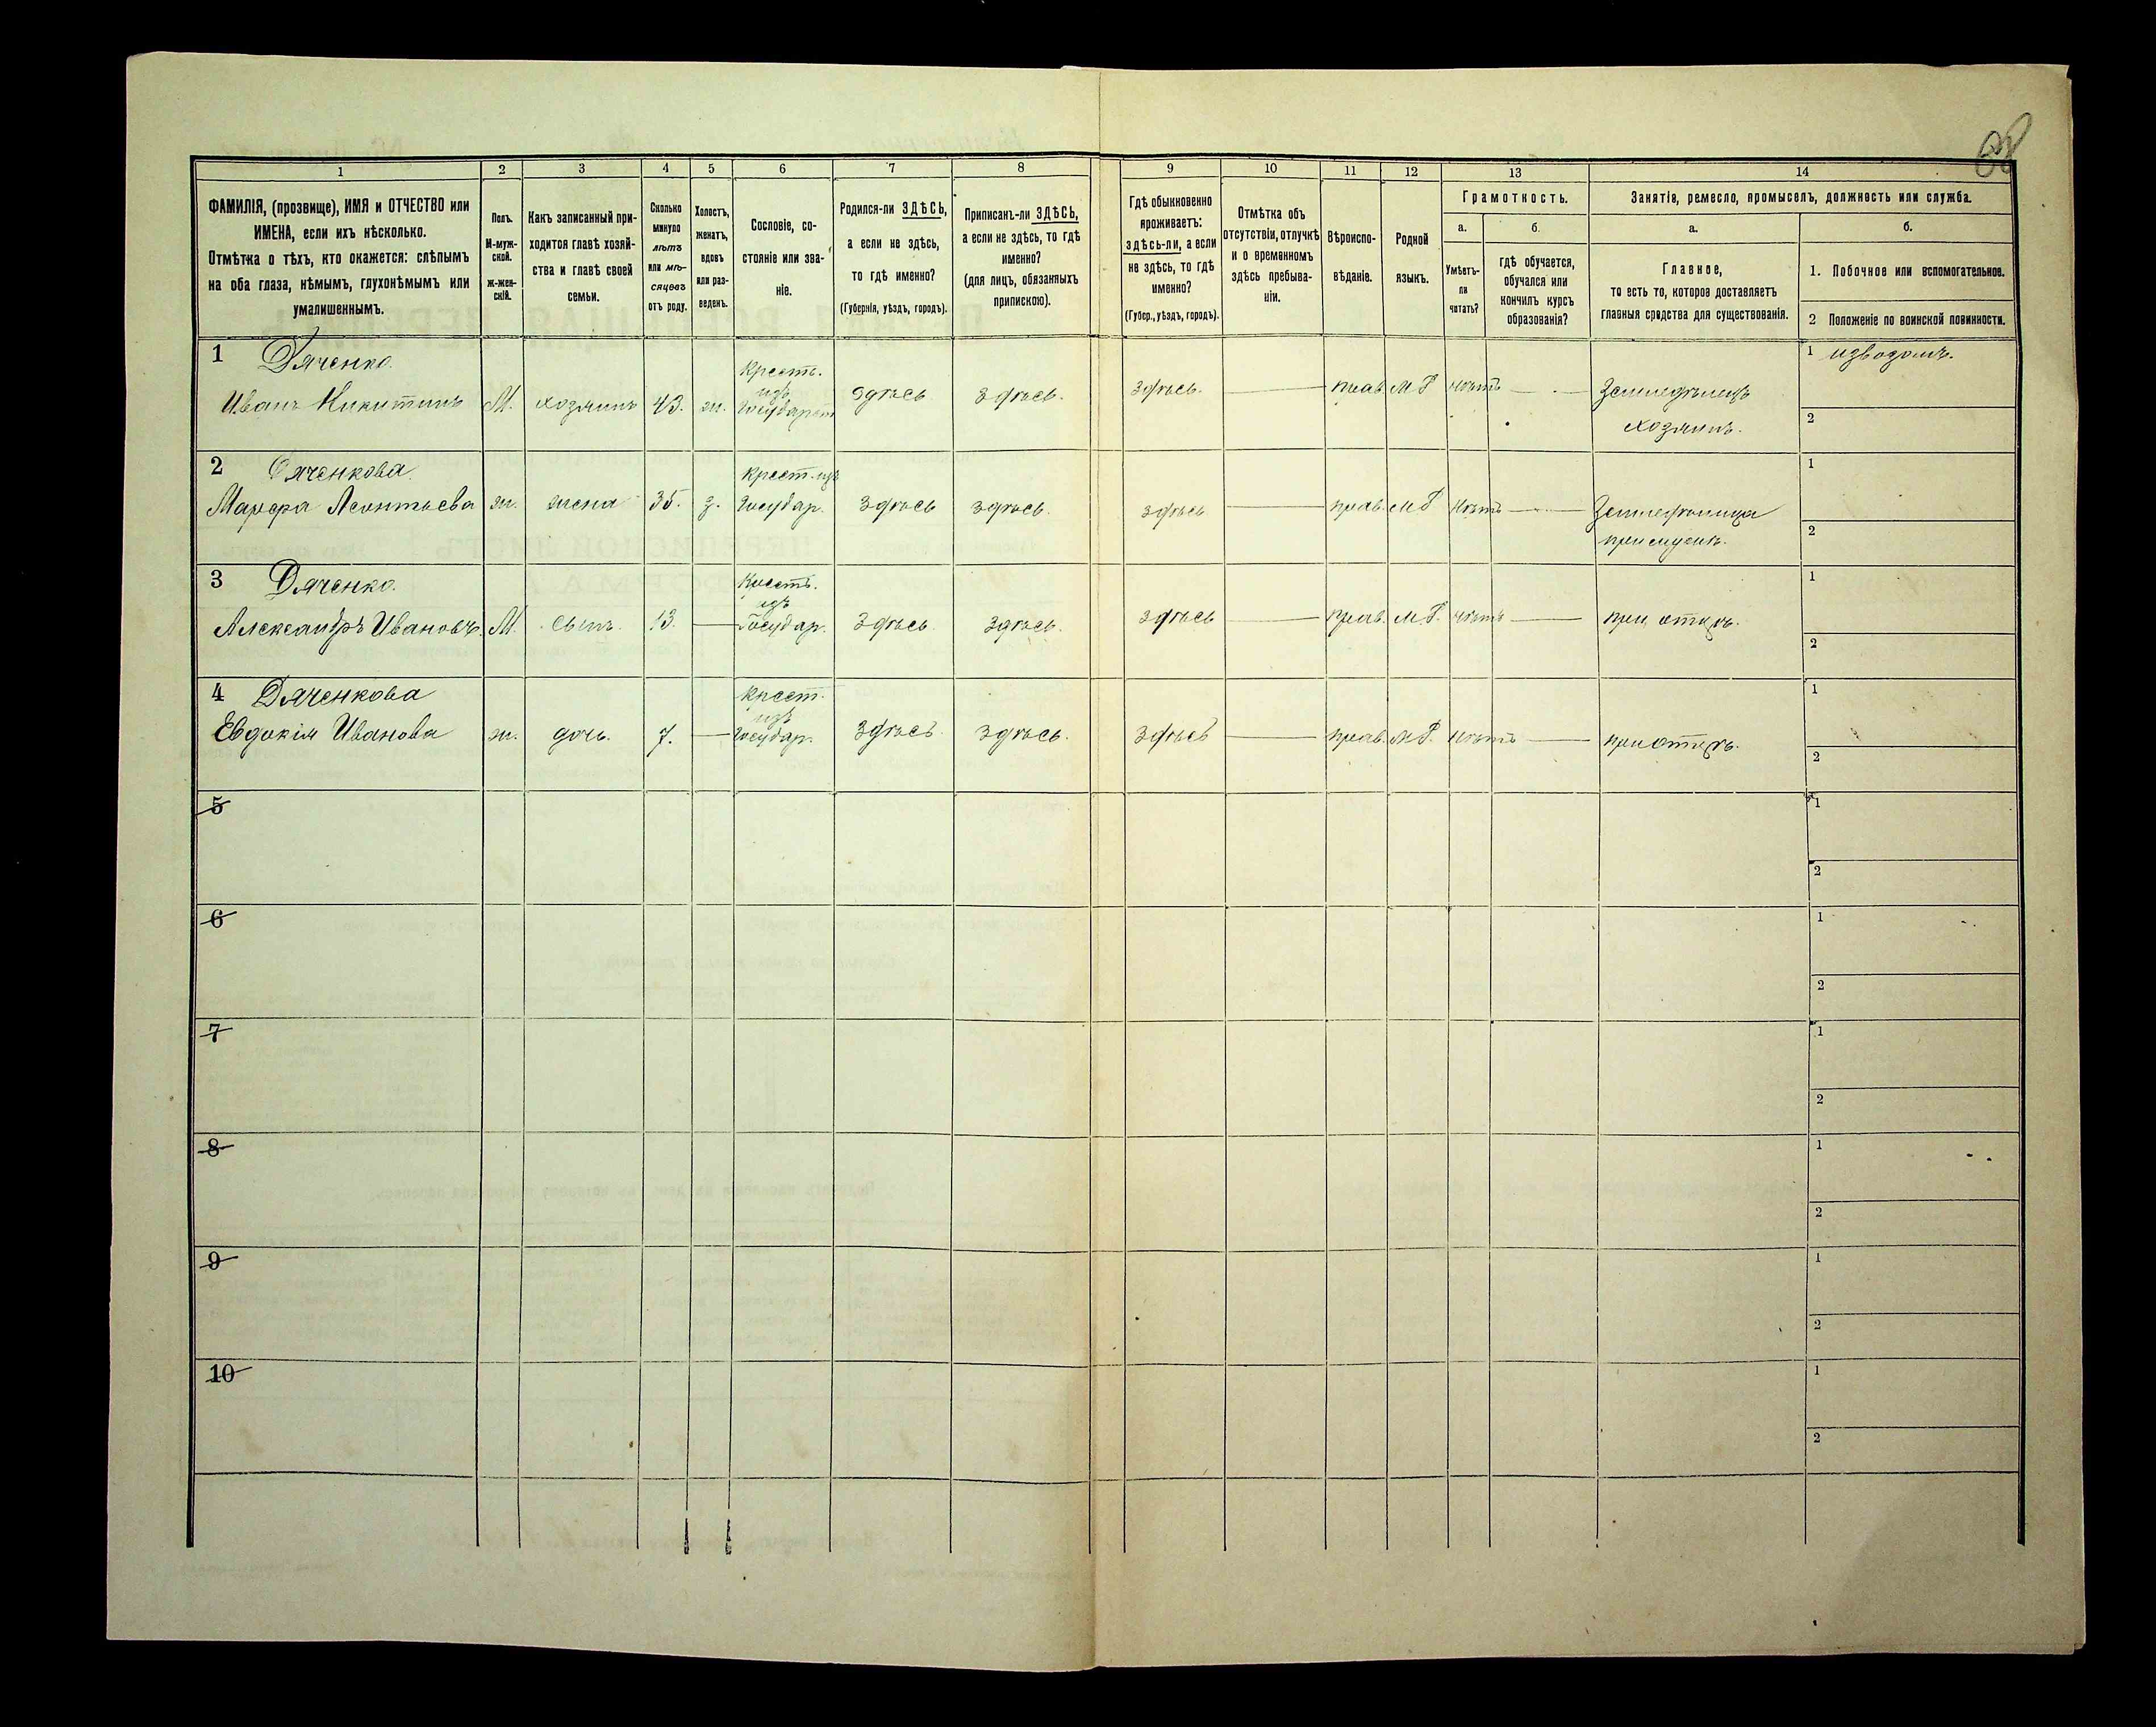 1 2 3 4 5 6 7 8 9 10 11 12 13 14
ФАМИЛІЯ, (прозвище), ИМЯ и ОТЧЕСТВО или
ИМЕНА, если ихъ нѣсколько.
Отмѣтка о тѣхъ, кто окажется: слѣпымъ
на оба глаза, нѣмымъ, глухонѣмымъ или
умалишеннымъ.
Полъ.
М-муж-
ской.
Ж-жен-
скій.
Какъ записанный при-
ходится главѣ хозяй-
ства и главѣ своей
семьи.
Сколько
минуло
лѣтъ
или мѣ-
сяцевъ
отъ роду.
Холостъ,
женатъ,
вдовъ
или раз-
веденъ.
Сословіе, со-
стояніе или зва-
ніе.
Родился-ли ЗДѢСЬ,
а если не здѣсь,
то гдѣ именно?
(Губернія, уѣздъ, городъ).
Приписанъ-ли ЗДѢСЬ,
а если не здѣсь, то гдѣ
именно?
(для лицъ, обязанныхъ
припискою).
Гдѣ обыкновенно
проживаетъ:
здѣсь-ли, а если
не здѣсь, то гдѣ
именно?
(Губер., уѣздъ, городъ).
Отмѣтка объ
отсутствіи, отлучкѣ
и о временномъ
здѣсь пребыва-
ніи.
Вѣроиспо-
вѣданіе.
Родной
языкъ.
Грамотность.
а.
Умѣетъ-
ли
читать?
б.
гдѣ обучается,
обучался или
кончилъ курсъ
образованія?
Занятіе, ремесло, промыселъ, должность или служба.
а.
Главное,
то есть то, которое доставляетъ
главныя средства для существованія.
б.
1. Побочное или вспомогательное.
2 Положеніе по воинской повинности.
1 Дяченко.
Иванъ Никитинъ М. хозяинъ 43. ж. Крестъ. изъ Государст здѣсь здѣсь. здѣсь. — прав. М Р нѣтъ — Земледѣлецъ
хозяинъ.
1 извозомъ.
2
2 Дяченкова.
Марфа Леонтьева ж. жена 35. з. Крест. изъ Государ. здѣсь здѣсь. здѣсь — прав. М Р нѣтъ — Земледѣлица
при мужѣ.
1
2
3 Дяченко.
Александръ Ивановъ. М. сынъ. 13. — Крестъ. изъ Государ. здѣсь. здѣсь. здѣсь — прав. М Р. нѣтъ — при отцѣ.
1
2
4 Дяченкова
Евдокія Иванова ж. дочь. 7. — Крест. изъ Государ. здѣсь. здѣсь. здѣсь — прав. М Р. нѣтъ — при отцѣ.
1
2
5
1
2
6
1
2
7
1
2
8
1
2
9
1
2
10
1
2